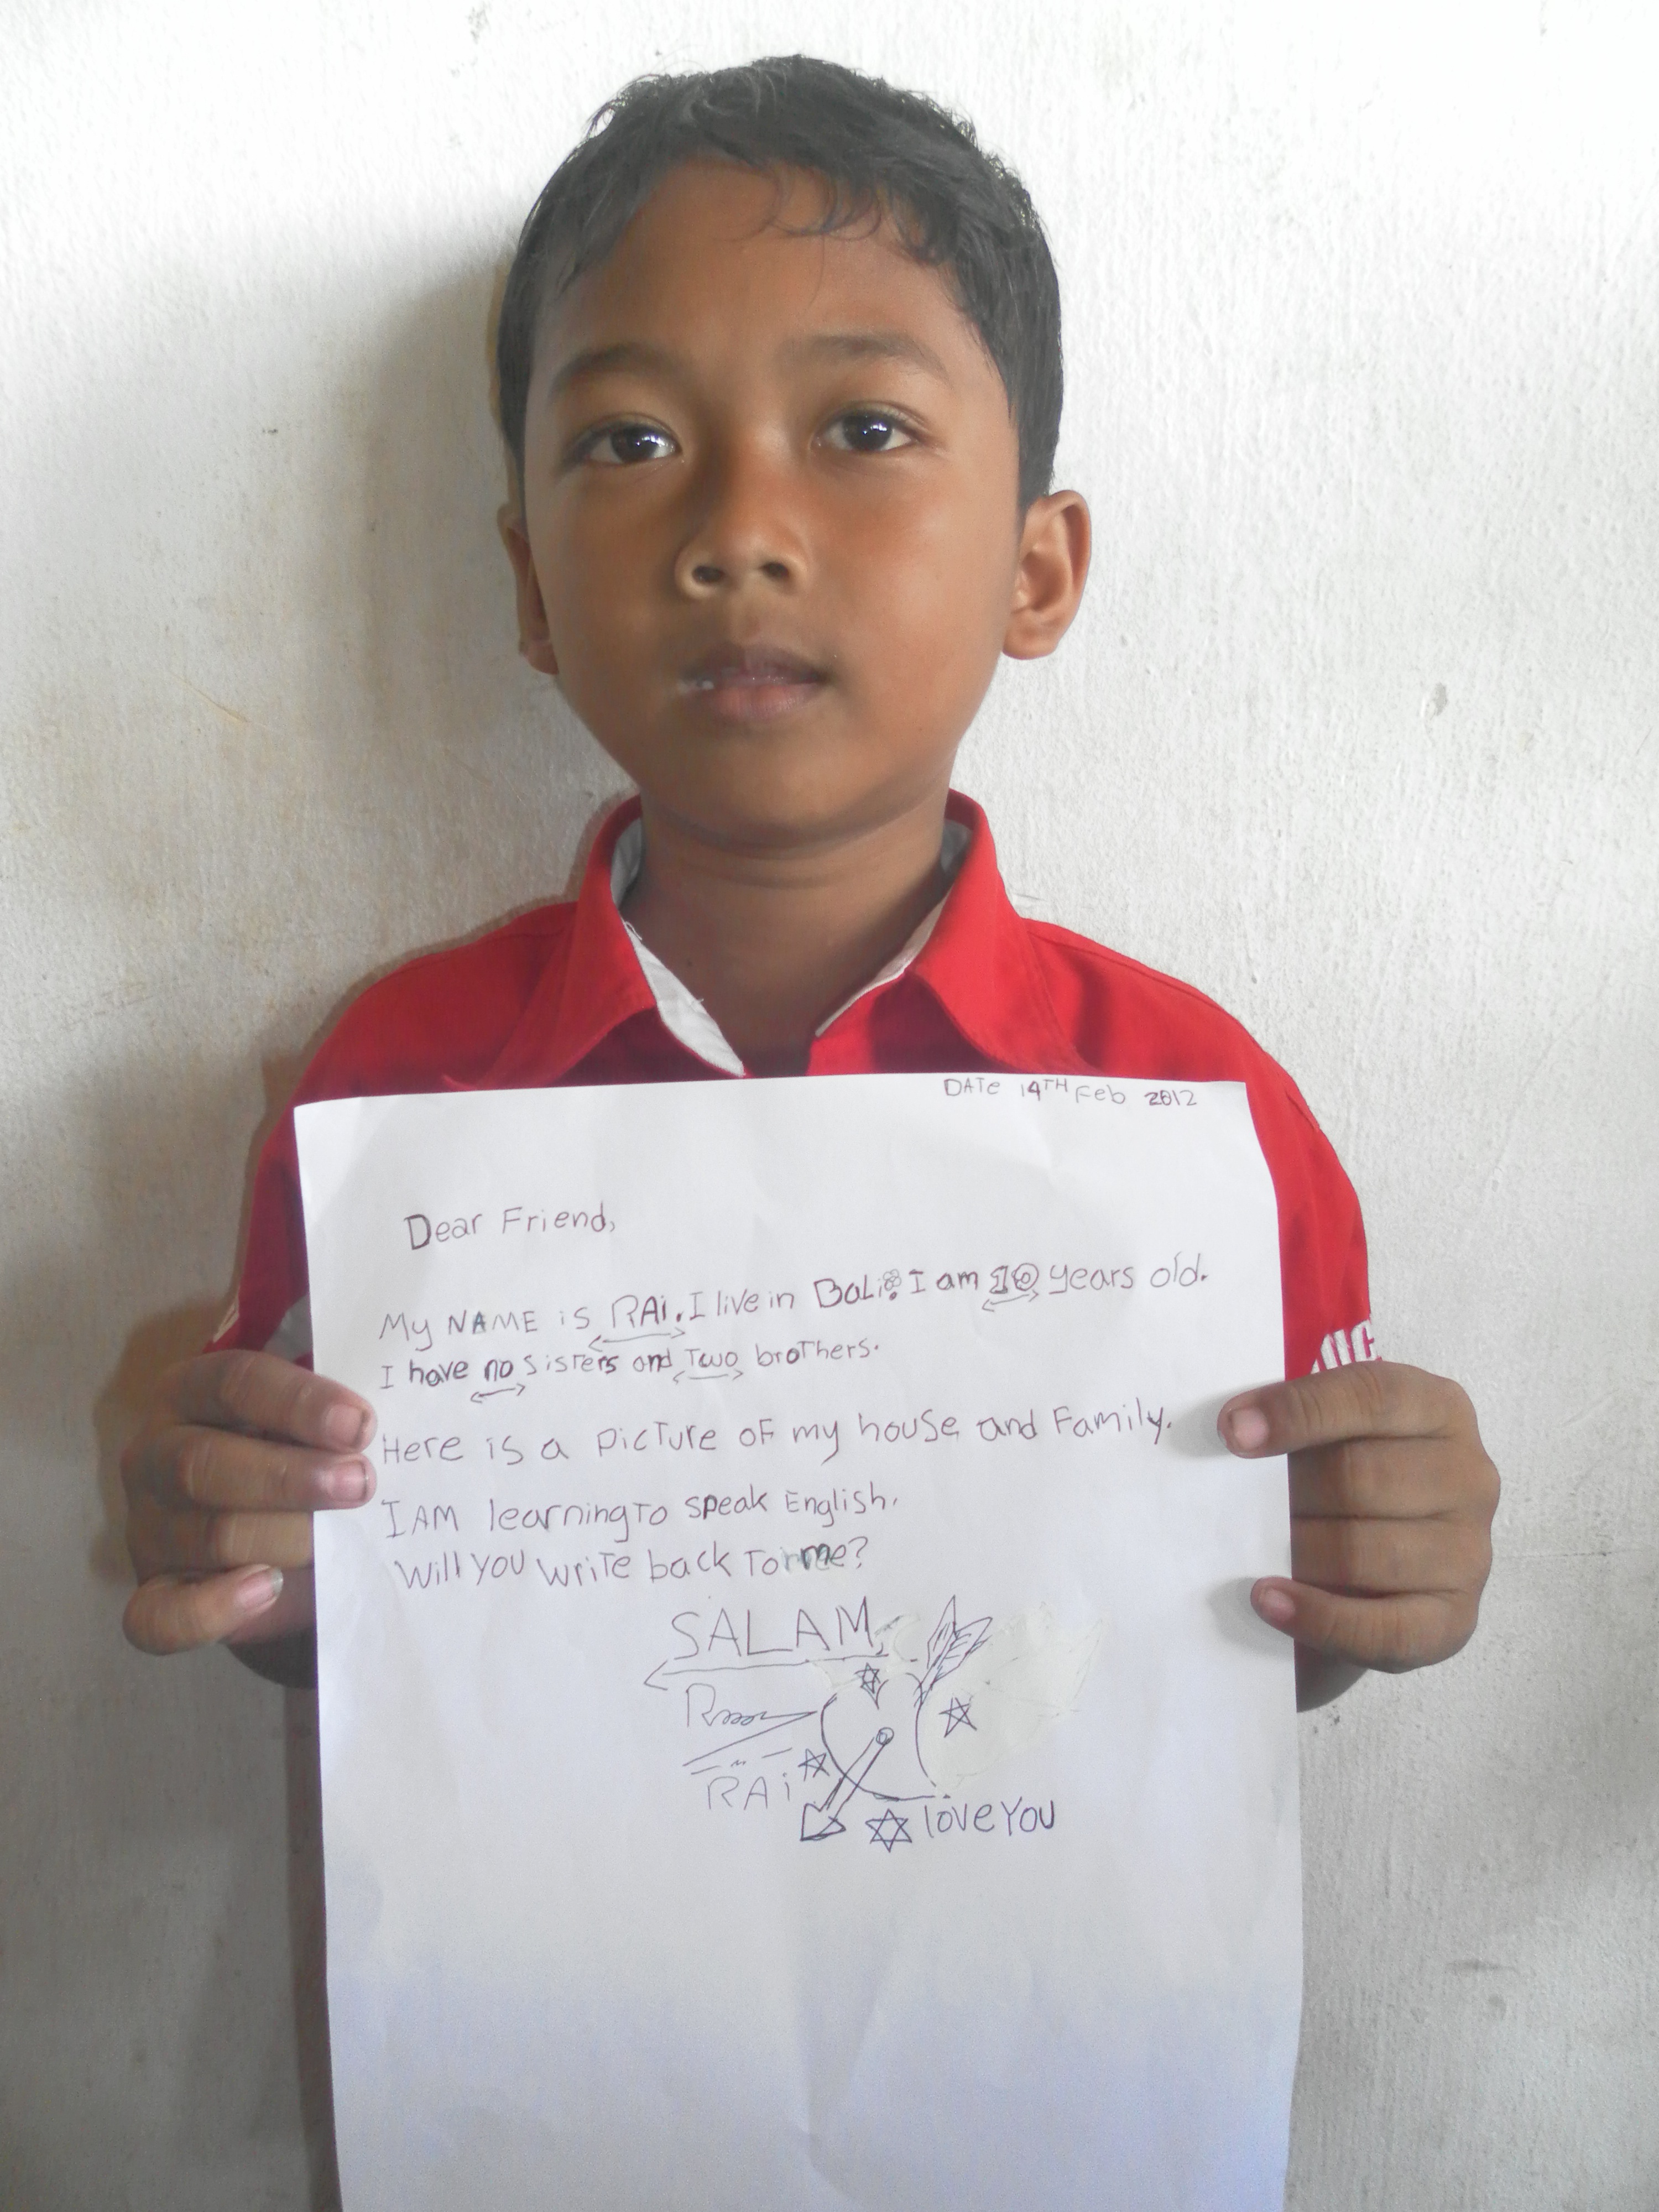 DATe 14TH Feb 2012
Dear Friend,
My NAME is RAi. I live in BaLi. I am 10 years old.
I have no sisTers and Two broThers.
Here is a picTure oF my house and Family.
I AM learning To speak English.
Will you wriTe back To me?
SALAM
RAi
love You